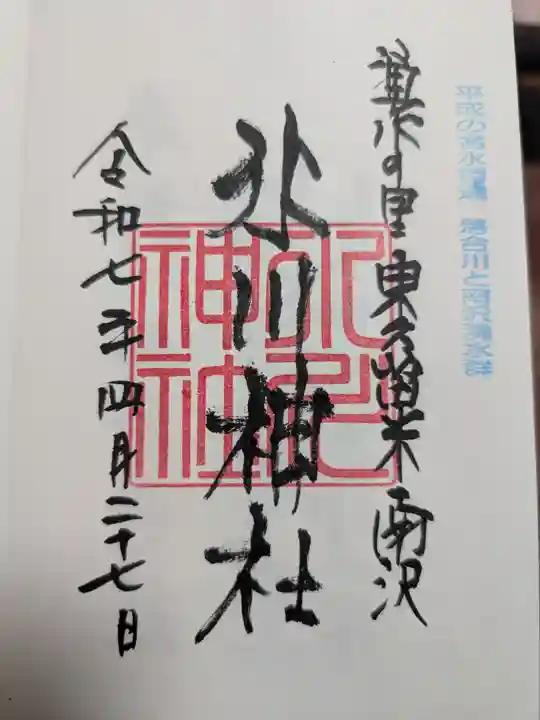 平成の名水百選 落合川と南沢湧水群
湧水の里 東久留米 南沢
氷川神社
氷川神社
令和七年四月二十七日